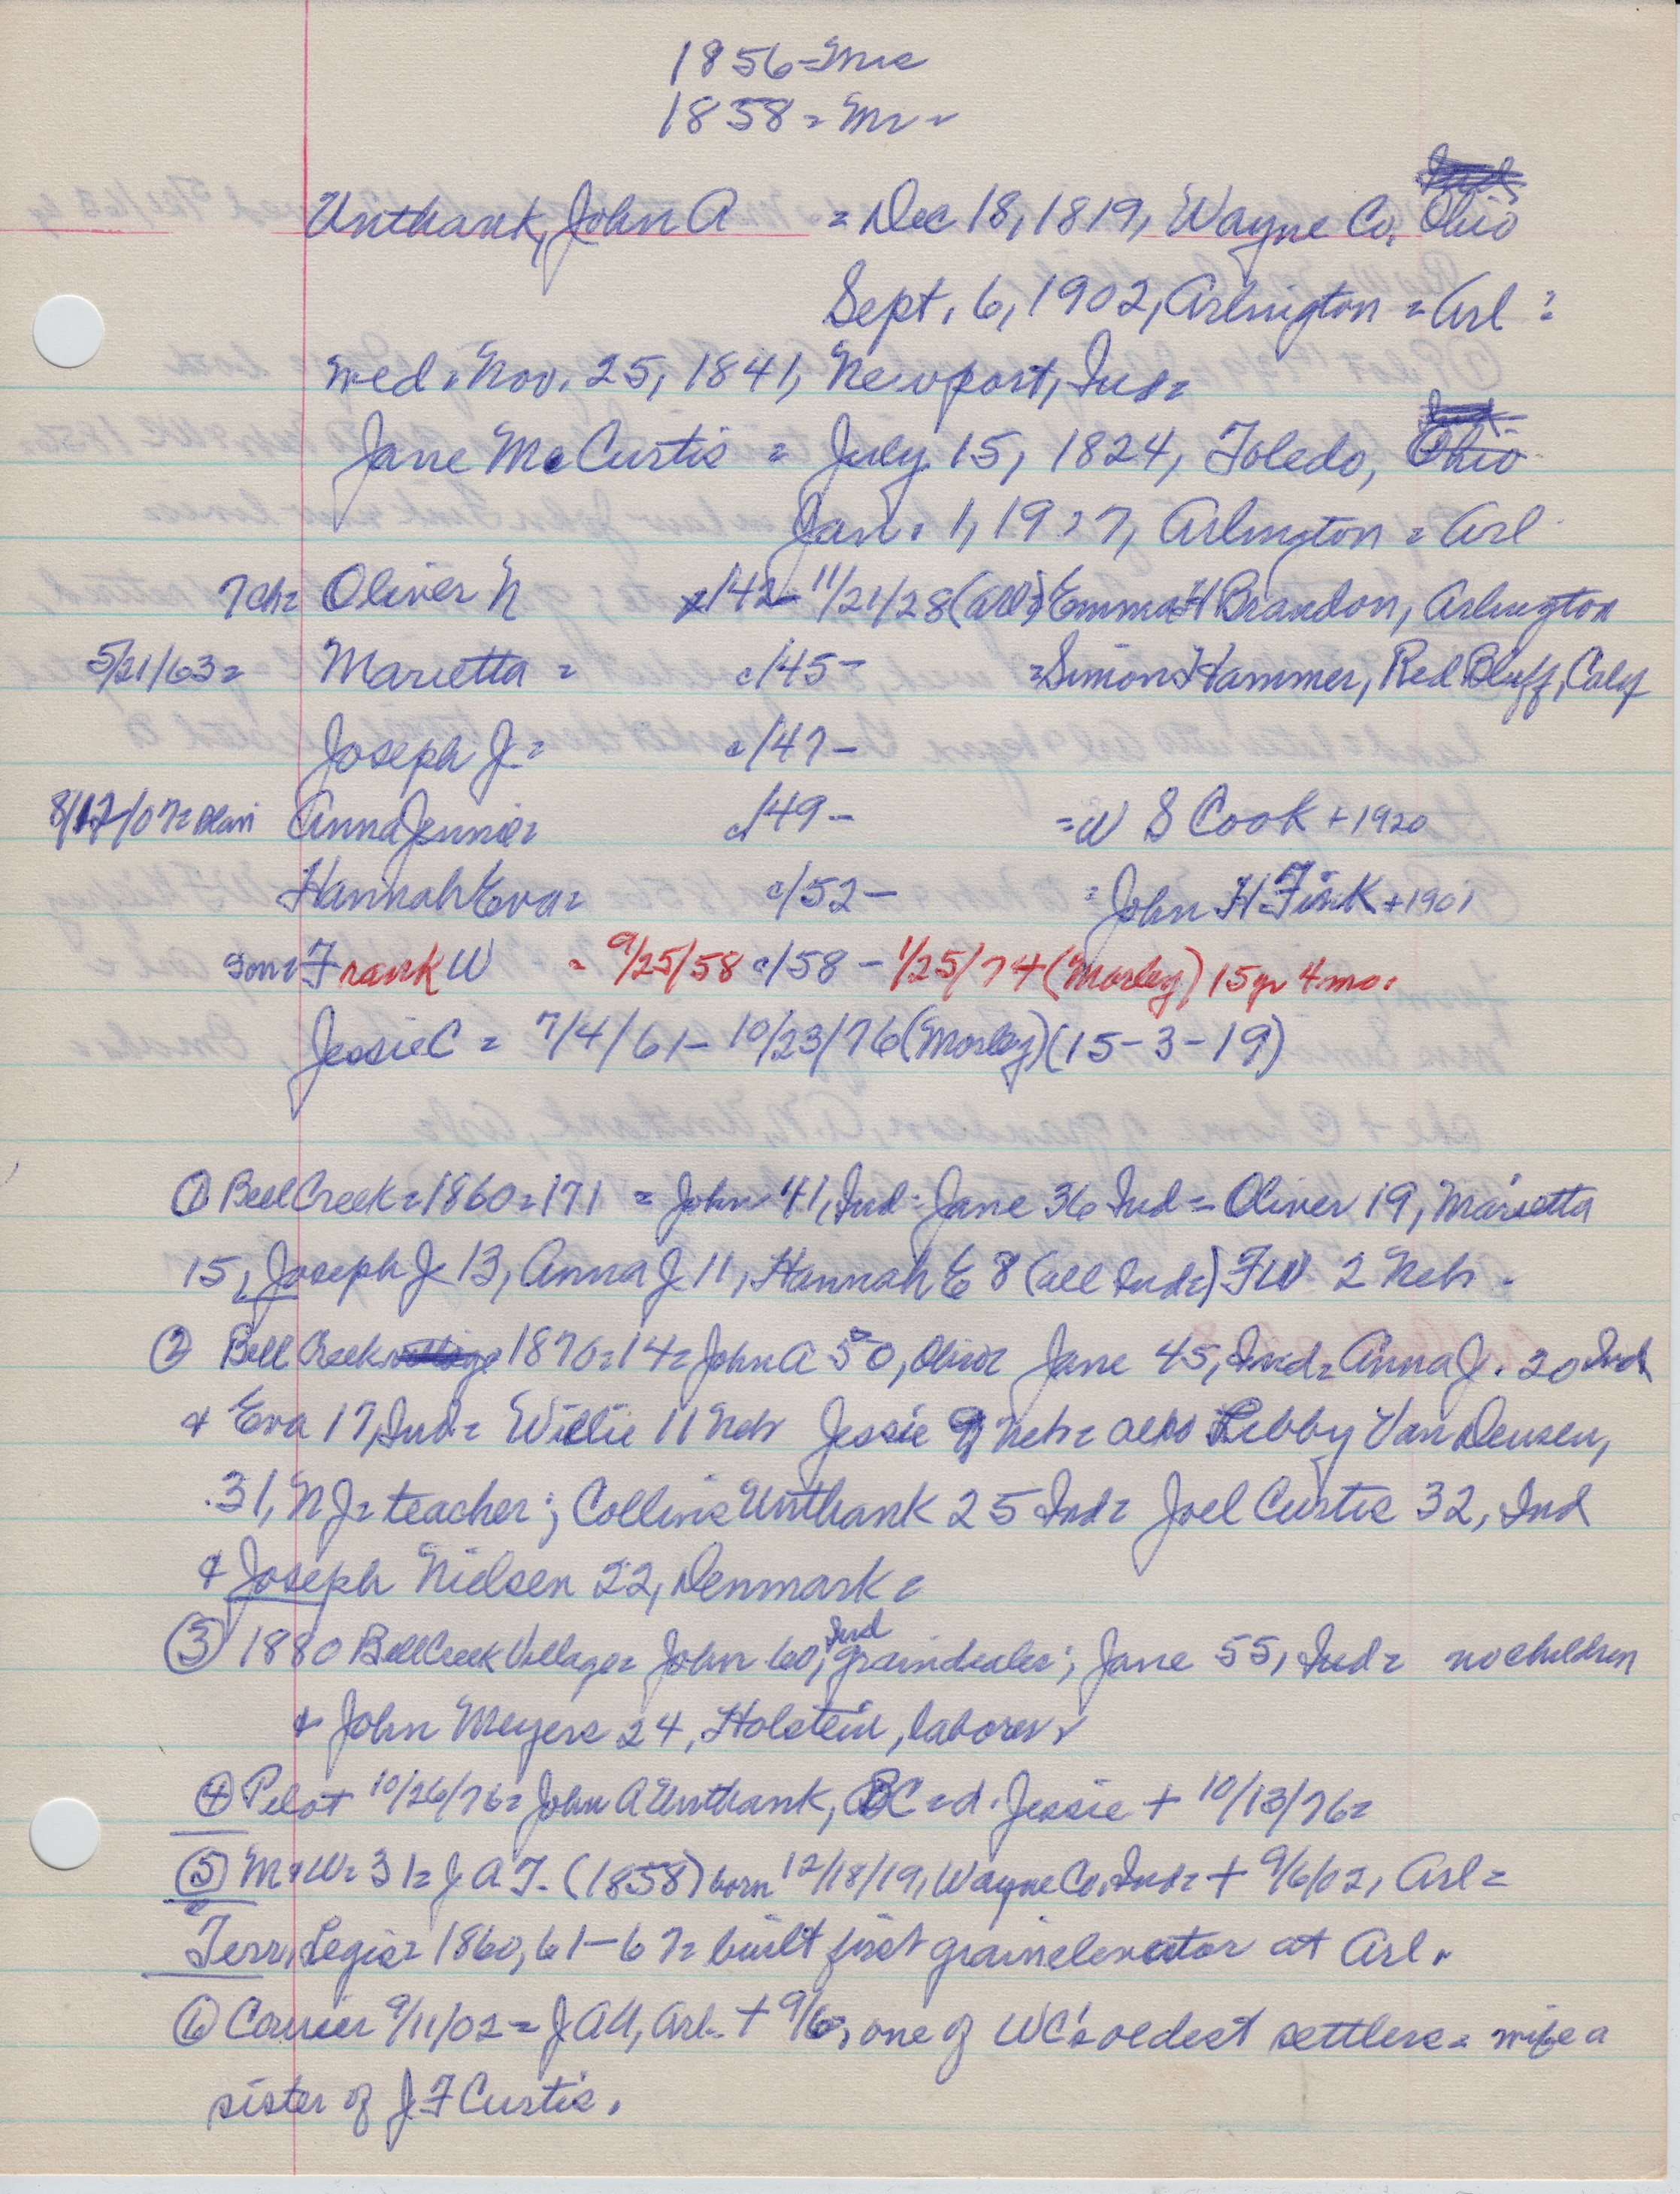 1856=Mrs
1858=Mr=
Unthank, John A = Dec 18, 1819, Wayne Co, Ohio
Sept. 6, 1902, Arlington = Arl =
med. Nov. 25, 1841, Newport, Ind=
Jane McCurtis = July 15, 1824, Toledo, Ohio
Jan. 1, 19, Arlington = Arl
7ch= Oliver N c/42- 11/21/28 (Arl) Emma H Brandon, Arlington
5/21/63= Marietta = c/45- =Simon Hammer, Red Bluff, Calif
Joseph J= c/47-
8/12/07= Blair Anna Jennie= c/49- =W S Cook +1920
Hannah Eva= c/52- =John H Fink +1901
son= Frank W = 9/25/58 c/58 - 1/25/74 (Mosley) 15 yr 4 mo.
Jessie C = 7/4/61- 10/23/76 (Mosley) (15-3-19)
① Bell Creek=1860=171 = John 41, Ind= Jane 36 Ind= Oliver 19, Marietta
15, Joseph J 13, Anna J 11, Hannah E 8 (all Ind=) FW 2 Nebr.
② Bell Creek 1870=14= John A 50, Ohio Jane 45, Ind= Anna J. 20 Ind
+ Eva 17, Ind= Willie 11 Nebr Jessie 9 Nebr= also Libby Van Deusen,
31, NJ= teacher; Collins Unthank 25 Ind= Joel Curtis 32, Ind
+ Joseph Nielsen 22, Denmark=
③ 1880 Bell Creek Village= John 60, Ind graindealer; Jane 55, Ind= no children
+ John Meyers 24, Holstein, laborer
④ Pilot 10/26/76= John A Unthank, BC=d. Jessie + 10/13/76=
⑤ M+W= 31= J A T. (1858) born 12/18/19, Wayne Co, Ind= + 9/6/02, Arl=
Terr, Legis= 1860, 61-67= built first grainelevator at Arl.
⑥ Courier 9/11/02= J A U, Arl. + 9/6, one of WC's oldest settlers= wife a
sister of J F Curtis.